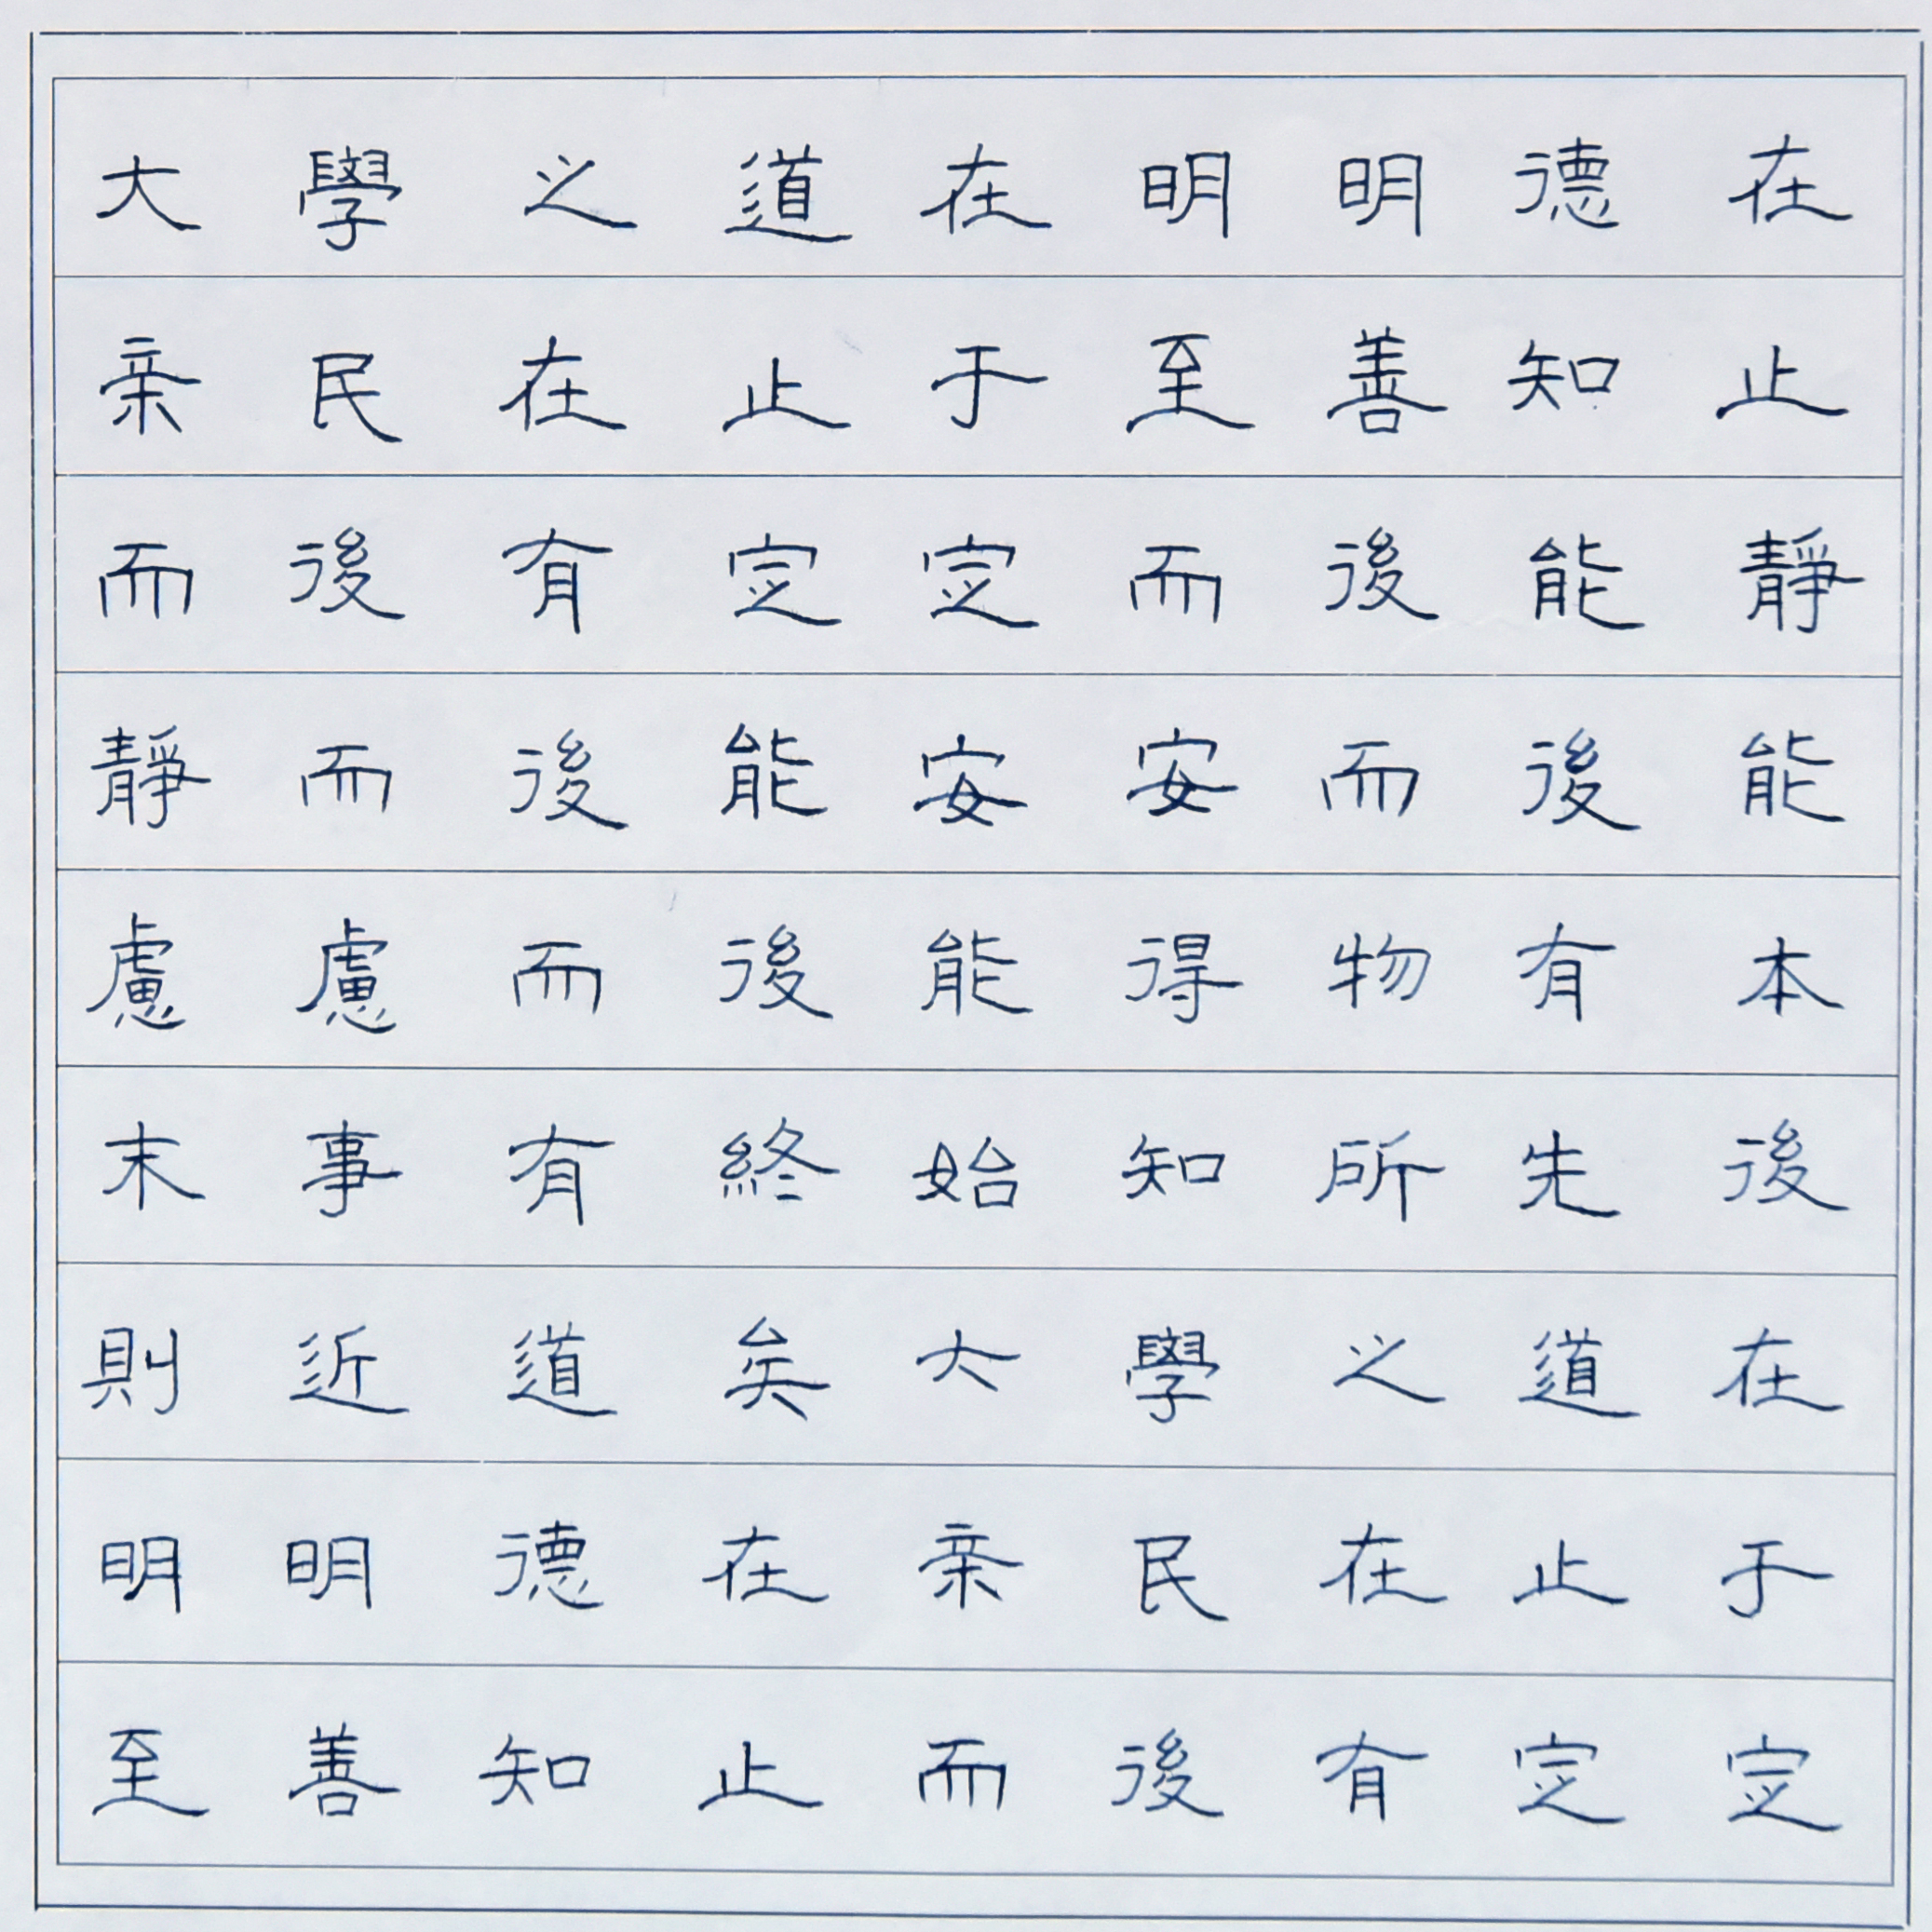 大學之道在明明德在
亲民在止于至善知止
而後有定定而後能靜
靜而後能安安而後能
慮慮而後能得物有本
末事有終始知所先後
則近道矣大學之道在
明明德在亲民在止于
至善知止而後有定定